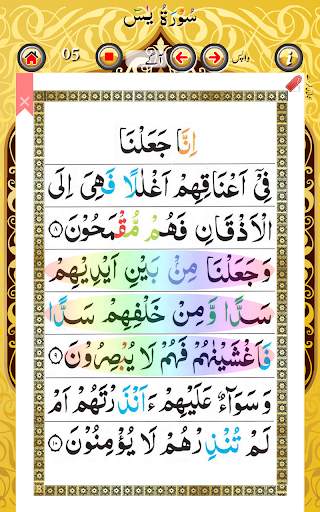 سُورَةُ يٰسٓ
05
واپس
اِنَّا جَعَلْنَا
فِيْٓ اَعْنَاقِهِمْ اَغْلٰلًا فَهِىَ اِلَى
الْاَذْقَانِ فَهُمْ مُّقْمَحُوْنَ ۸
وَجَعَلْنَا مِنْۢ بَيْنِ اَيْدِيْهِمْ
سَدًّا وَّمِنْ خَلْفِهِمْ سَدًّا
فَاَغْشَيْنٰهُمْ فَهُمْ لَا يُبْصِرُوْنَ ۹
وَسَوَآءٌ عَلَيْهِمْ ءَاَنْذَرْتَهُمْ اَمْ
لَمْ تُنْذِرْهُمْ لَا يُؤْمِنُوْنَ ۱۰